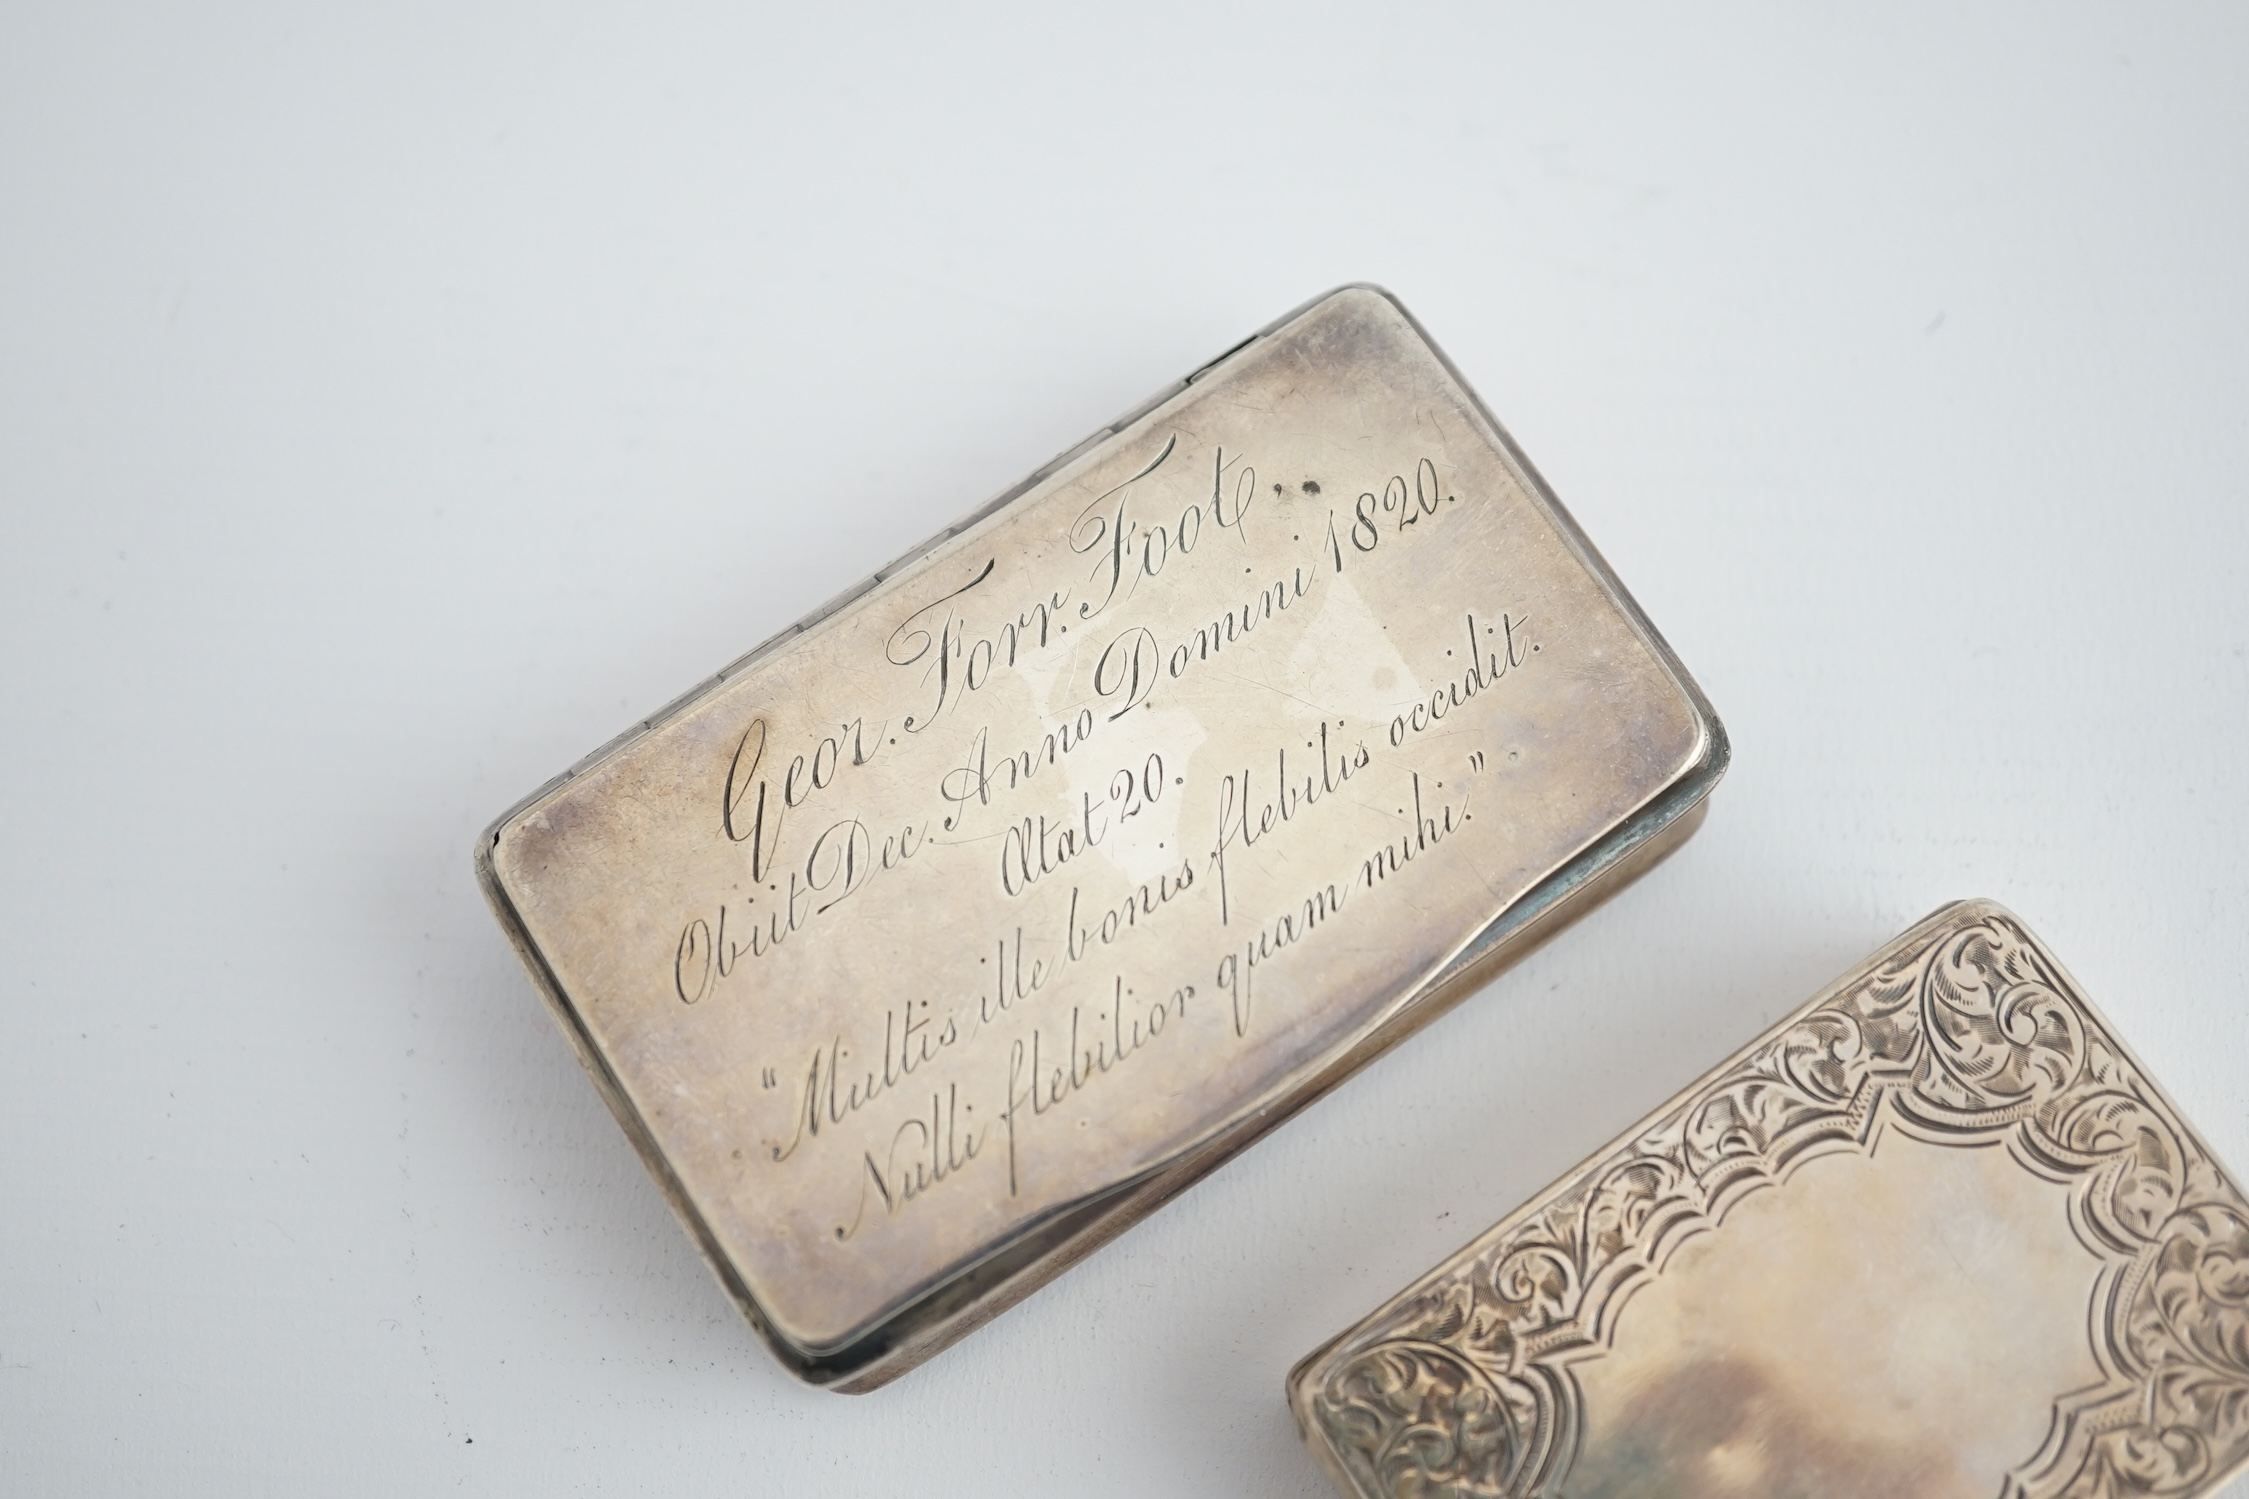 Geor. Forr. Foot,.
Obiit Dec. Anno Domini 1820.
Ætat 20.
"Multis ille bonis flebilis occidit.
Nulli flebilior quam mihi."